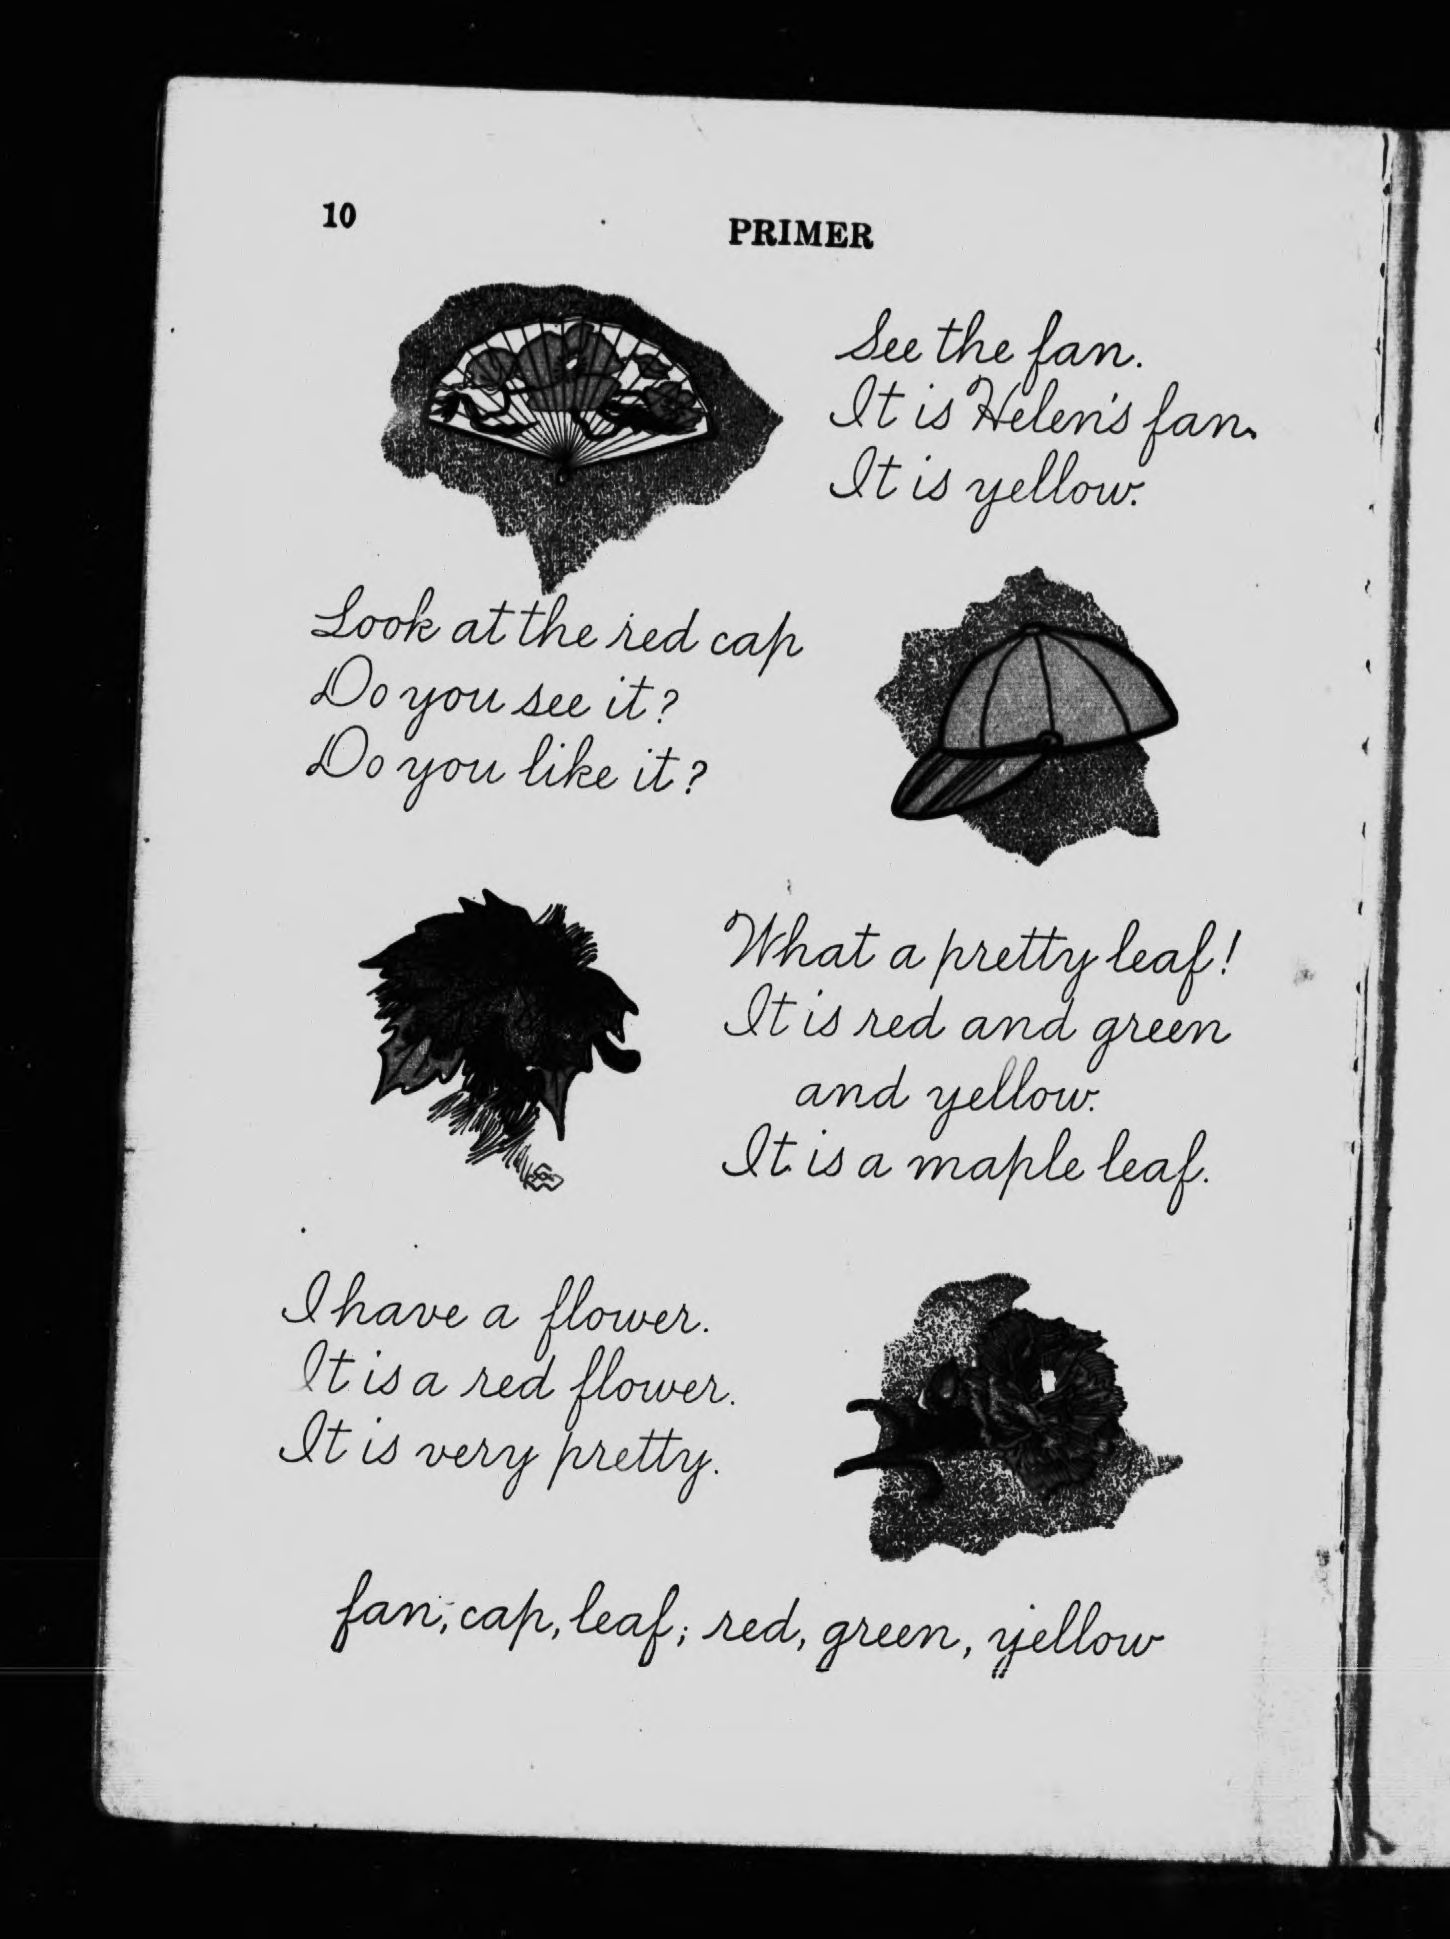 10
PRIMER
See the fan.
It is Helen's fan.
It is yellow.
Look at the red cap
Do you see it?
Do you like it?
What a pretty leaf!
It is red and green
and yellow.
It is a maple leaf.
I have a flower.
It is a red flower.
It is very pretty.
fan, cap, leaf; red, green, yellow